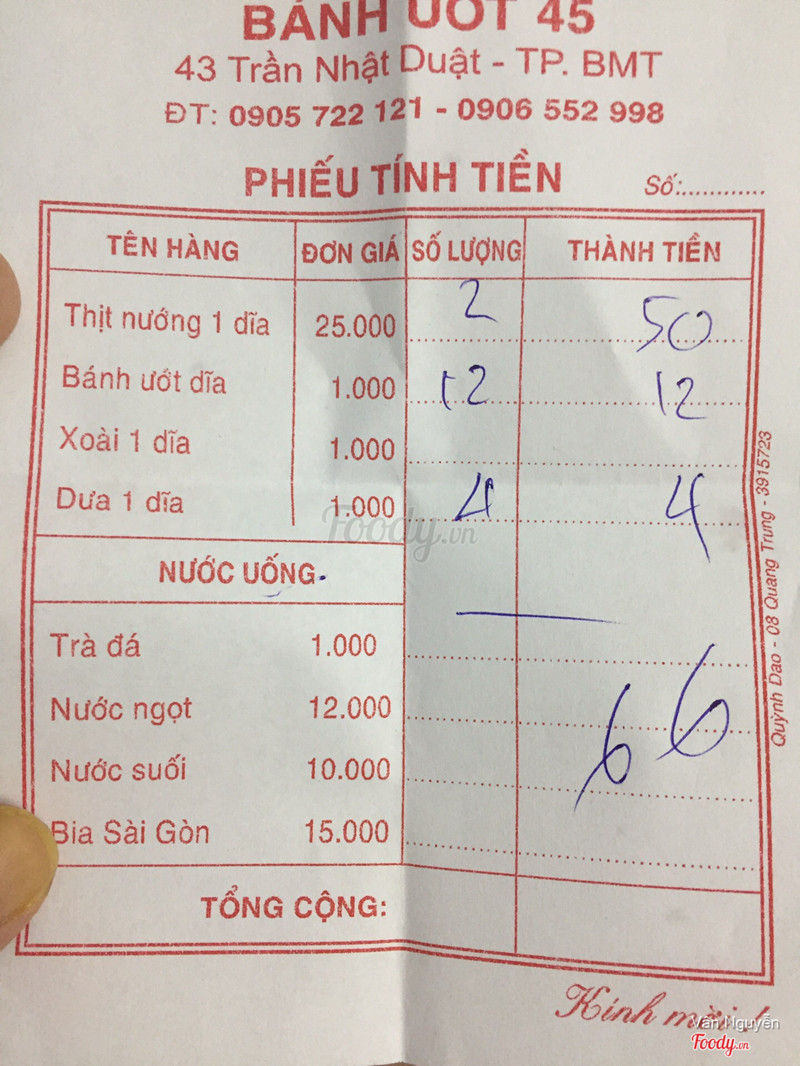 BÁNH ƯỚT 45
43 Trần Nhật Duật - TP. BMT
ĐT: 0905 722 121 - 0906 552 998
PHIẾU TÍNH TIỀN Số:............
TÊN HÀNG ĐƠN GIÁ SỐ LƯỢNG THÀNH TIỀN
Thịt nướng 1 dĩa 25.000 2 50
Bánh ướt dĩa 1.000 12 12
Xoài 1 dĩa 1.000
Dưa 1 dĩa 1.000 4 4
Foody.vn
NƯỚC UỐNG
Trà đá 1.000
Nước ngọt 12.000 66
Nước suối 10.000
Bia Sài Gòn 15.000
TỔNG CỘNG:
Quỳnh Dao - 08 Quang Trung - 3915723
Kính mời !
Vân Nguyễn
Foody.vn